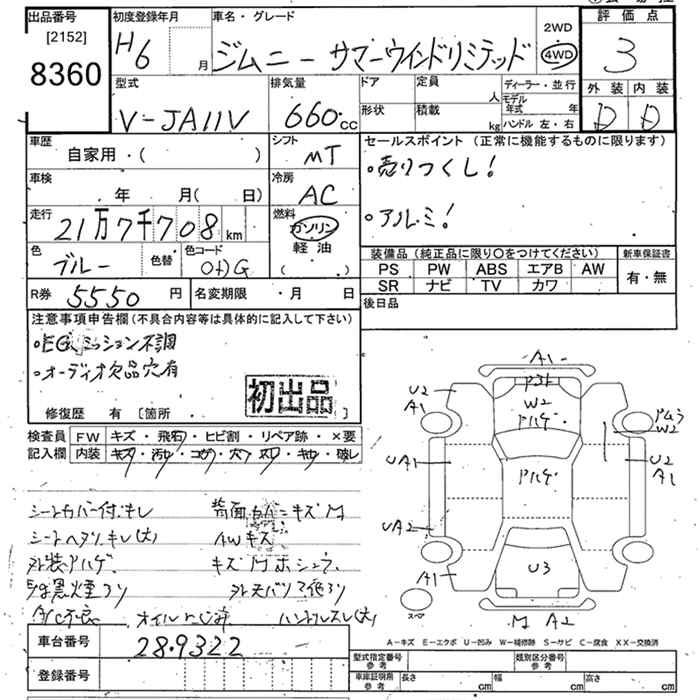 出品番号
[2152]
8360
初度登録年月
H6 月
車名・グレード
ジムニー サマーウインドリミテッド
2WD
4WD
評価点
3
外装 内装
D D
型式
V-JA11V
排気量
660 cc
ドア
定員
人
ディーラー・並行
モデル年式 年
形状
積載
kg
ハンドル 左・右
車歴
自家用・( )
シフト
MT
セールスポイント (正常に機能するものに限ります)
・売りつくし!
・アルミ!
車検
年 月( 日)
冷房
AC
走行
21万7千708 km
燃料
ガソリン
軽油
( )
色
ブルー
色替
色コード
装備品 (純正品に限り○をつけてください)
新車保証書
PS PW ABS エアB AW
SR ナビ TV カワ
有・無
R券 5550 円
名変期限 ・月 日
後日品
注意事項申告欄(不具合内容等は具体的に記入して下さい)
・EG、ミッション不調
・オーディオ欠品穴有
初出品
修復歴 有 [箇所
検査員
記入欄
FW キズ・飛石・ヒビ割・リペア跡・×要
内装 キズ・汚れ・コゲ・穴・スレ・キレ・破レ
シートカバー付キレ
シートヘタリ、キレ(大)
AWキズ
外装アハゲ、
黒煙
A/C不良
ハンドルスレ(大)
A1
U2
A1
W2
アハゲ
W2
UA1
アハゲ
U2
A1
UA2
U3
A1
スペ
A2
車台番号
28-9322
登録番号
A-キズ E-エクボ U-凹み W-補修跡 S-サビ C-腐食 XX-交換済
型式指定番号
参考
類別区分番号
参考
車庫証明用
参考
長さ cm
幅 cm
高さ cm